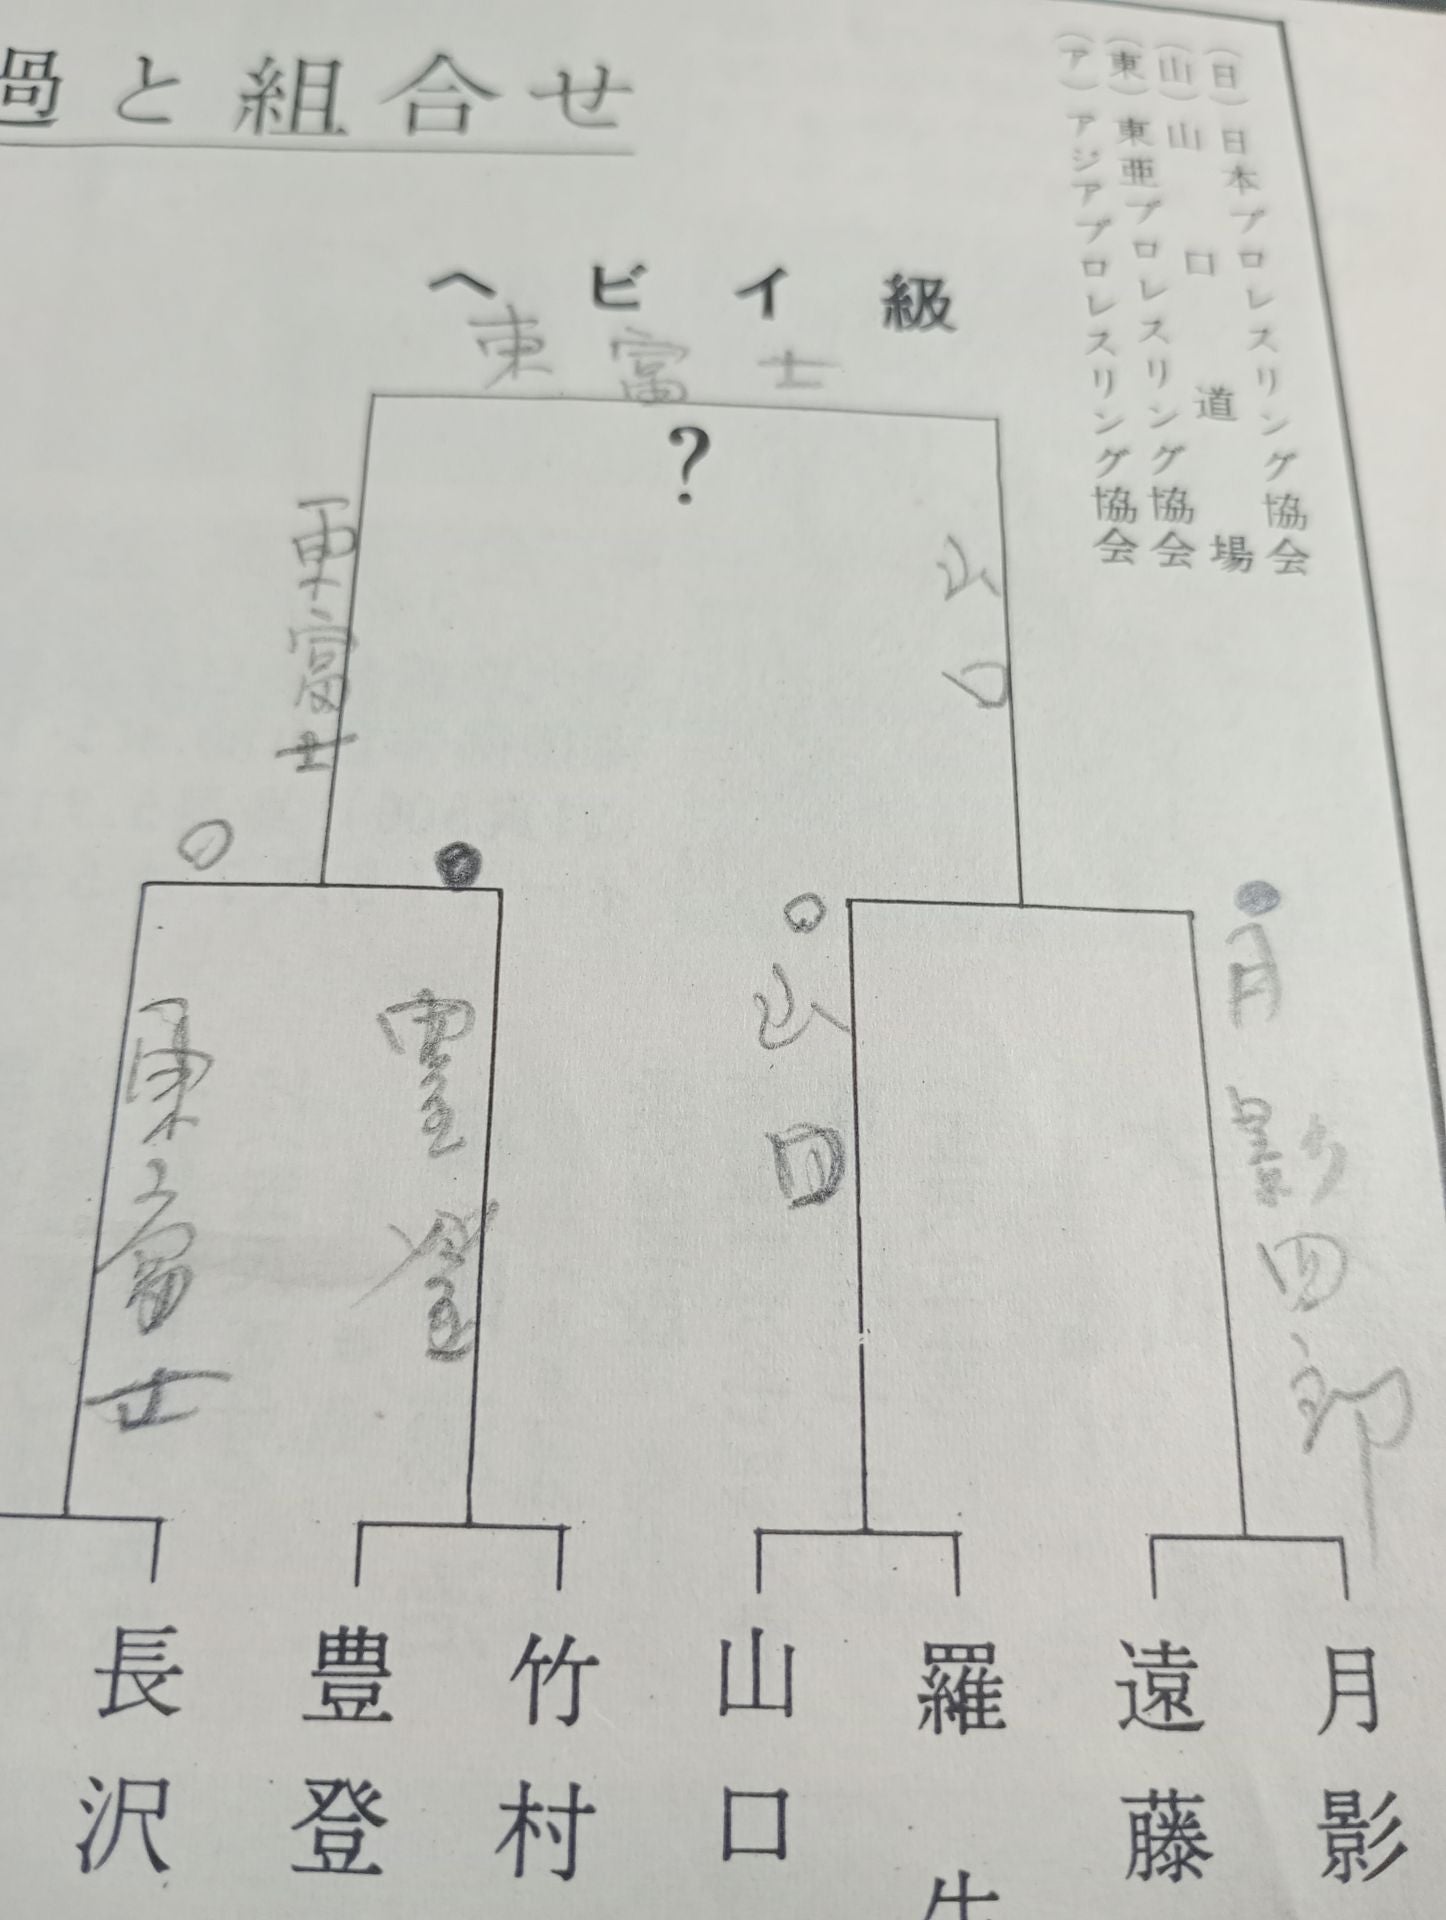 過と組合せ
(日)日本プロレスリング協会
(山)山口道場
(東)東亜プロレスリング協会
(ア)アジアプロレスリング協会
ヘビイ級
東富士
?
東富士
山口
東富士
豊登
山口
月影四郎
長沢
豊登
竹村
山口
羅
遠藤
月影